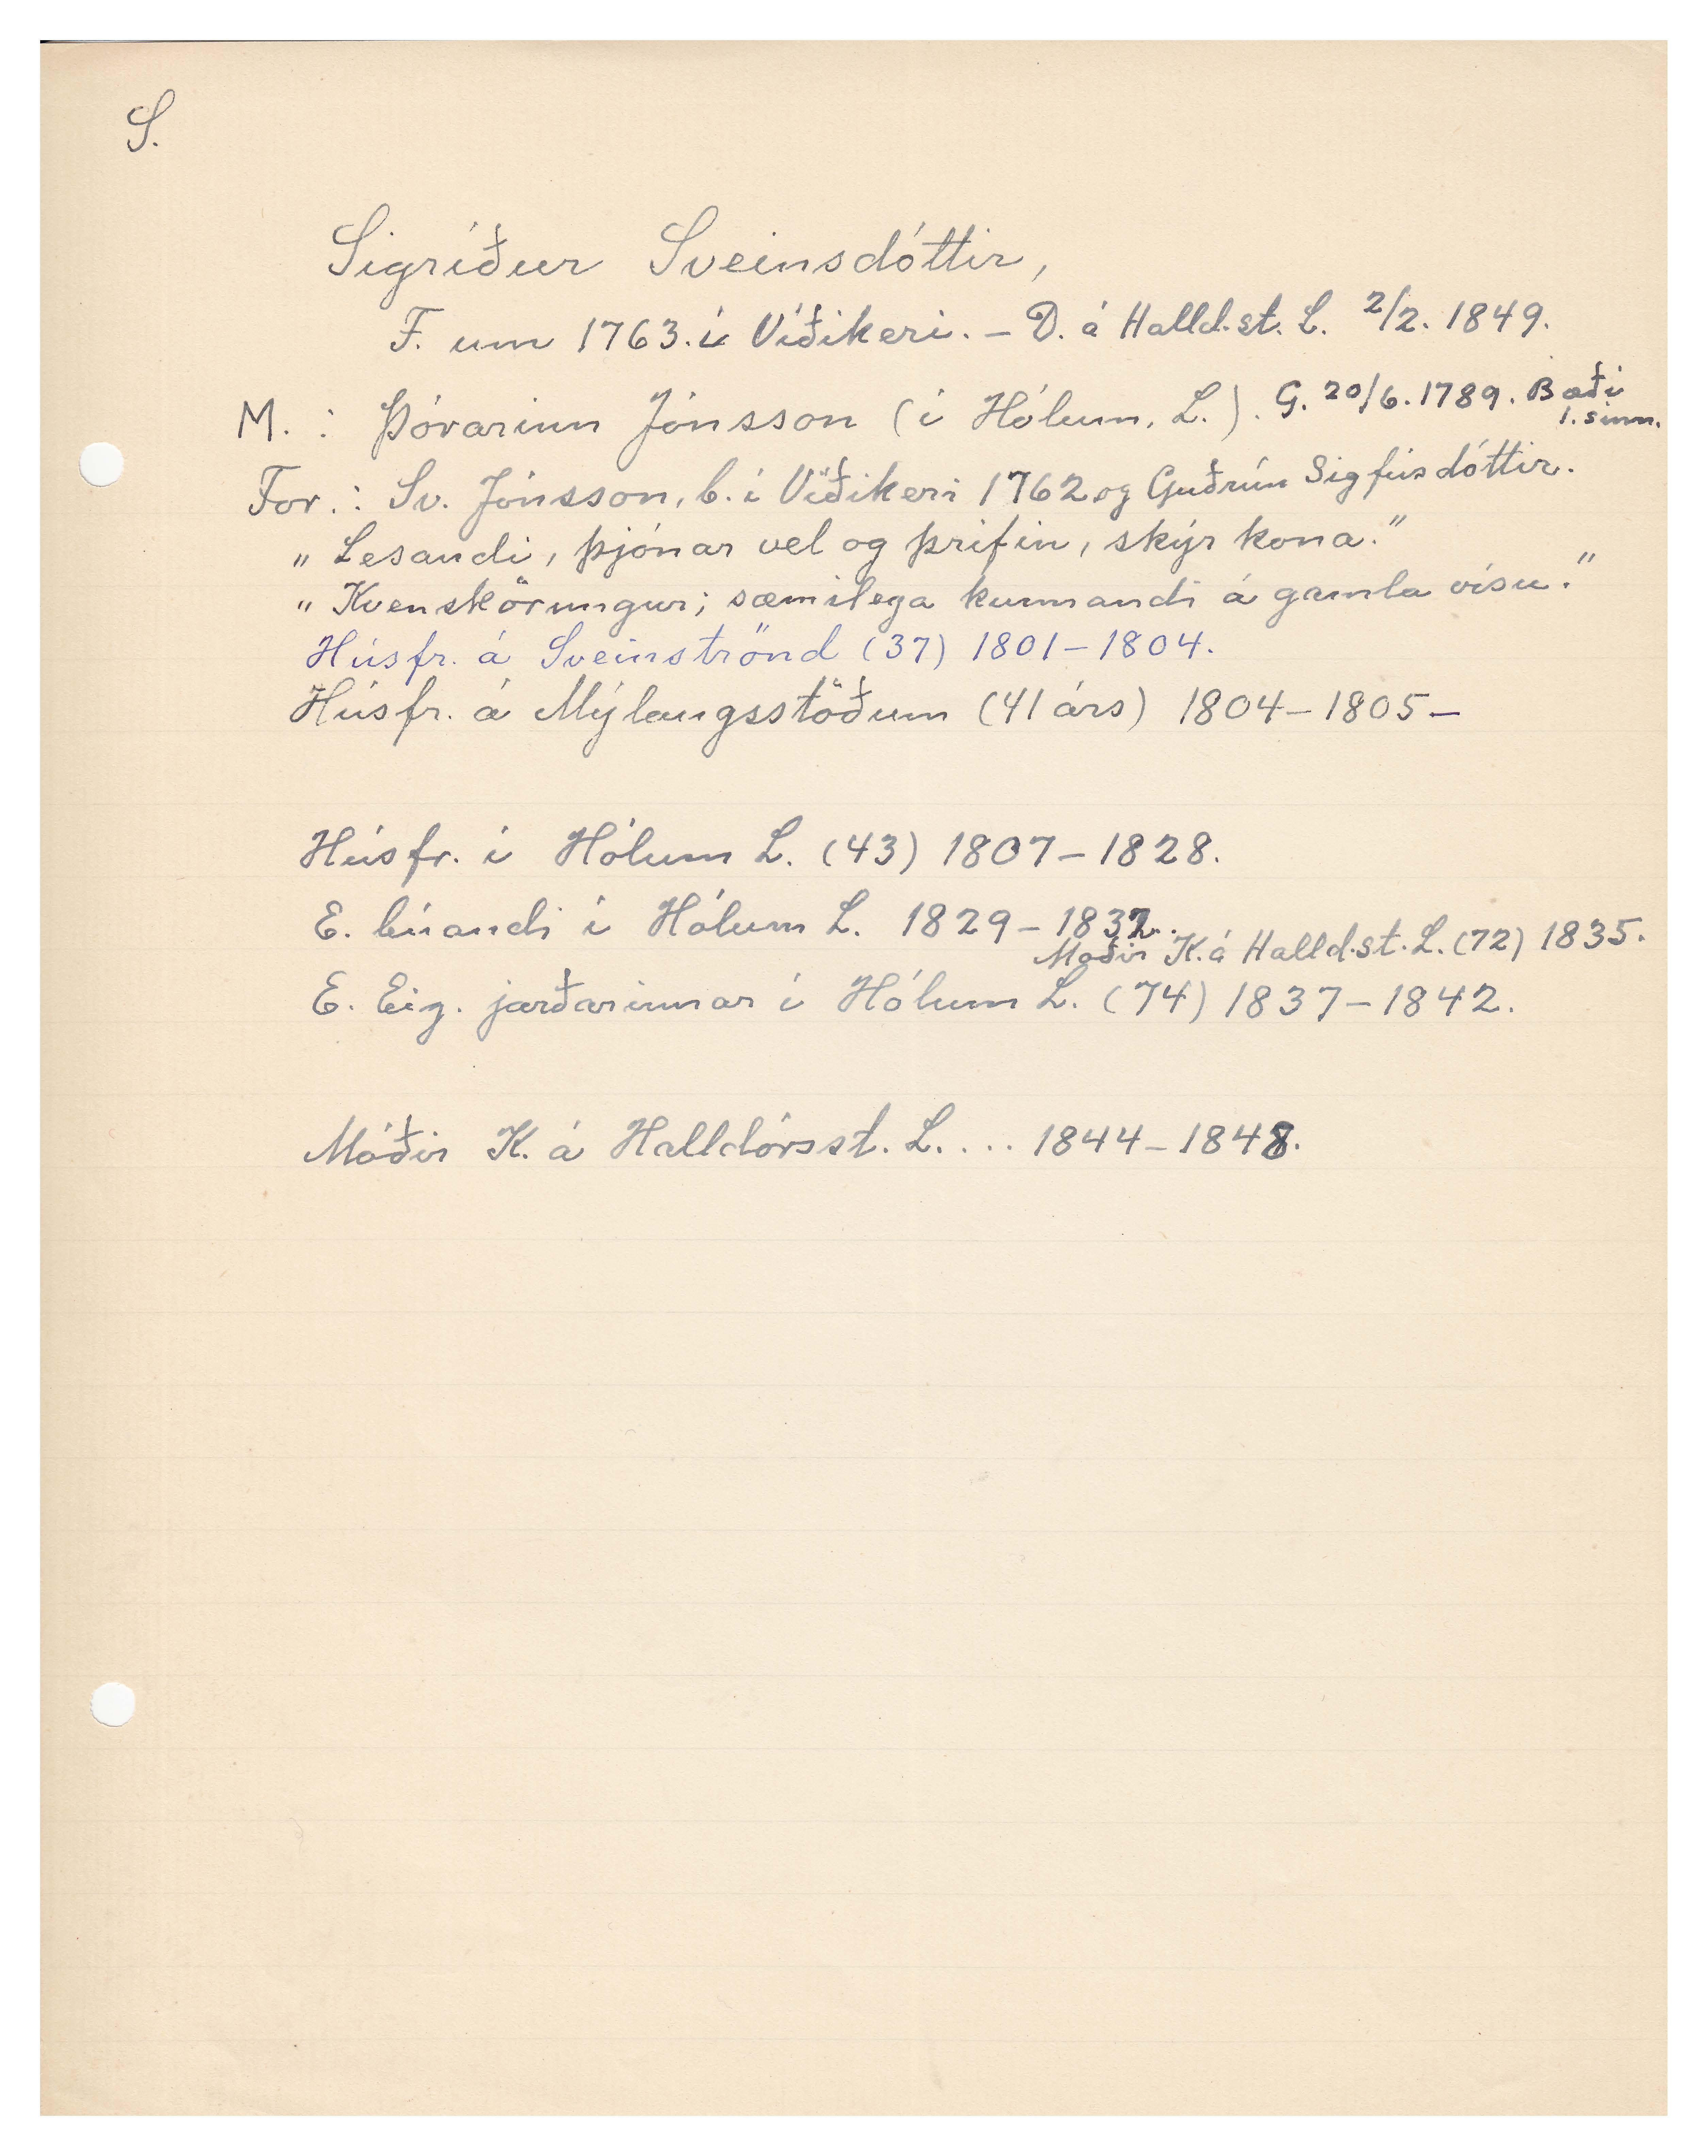 S.
Sigríður Sveinsdóttir,
F. um 1763. í Víðikeri. – D. á Halld.st. L. 2/2. 1849.
M. : Þórarinn Jónsson (í Hólum, L.). G. 20/6. 1789. Bæði
1. sinn.
For. : Sv. Jónsson, b. í Víðikeri 1762 og Guðrún Sigfúsdóttir.
„Lesandi, þjónar vel og þrifin, skýr kona.“
„Kvenskörungur; sæmilega kunnandi á gamla vísu.“
Húsfr. á Sveinströnd (37) 1801–1804.
Húsfr. á Mýlaugsstöðum (41 árs) 1804–1805–
Húsfr. í Hólum L. (43) 1807–1828.
E. búandi í Hólum L. 1829–1832.
Móðir K. á Halld.st. L. (72) 1835.
E. Eig. jarðarinnar í Hólum L. (74) 1837–1842.
Móðir K. á Halldórsst. L. . . . 1844–1848.